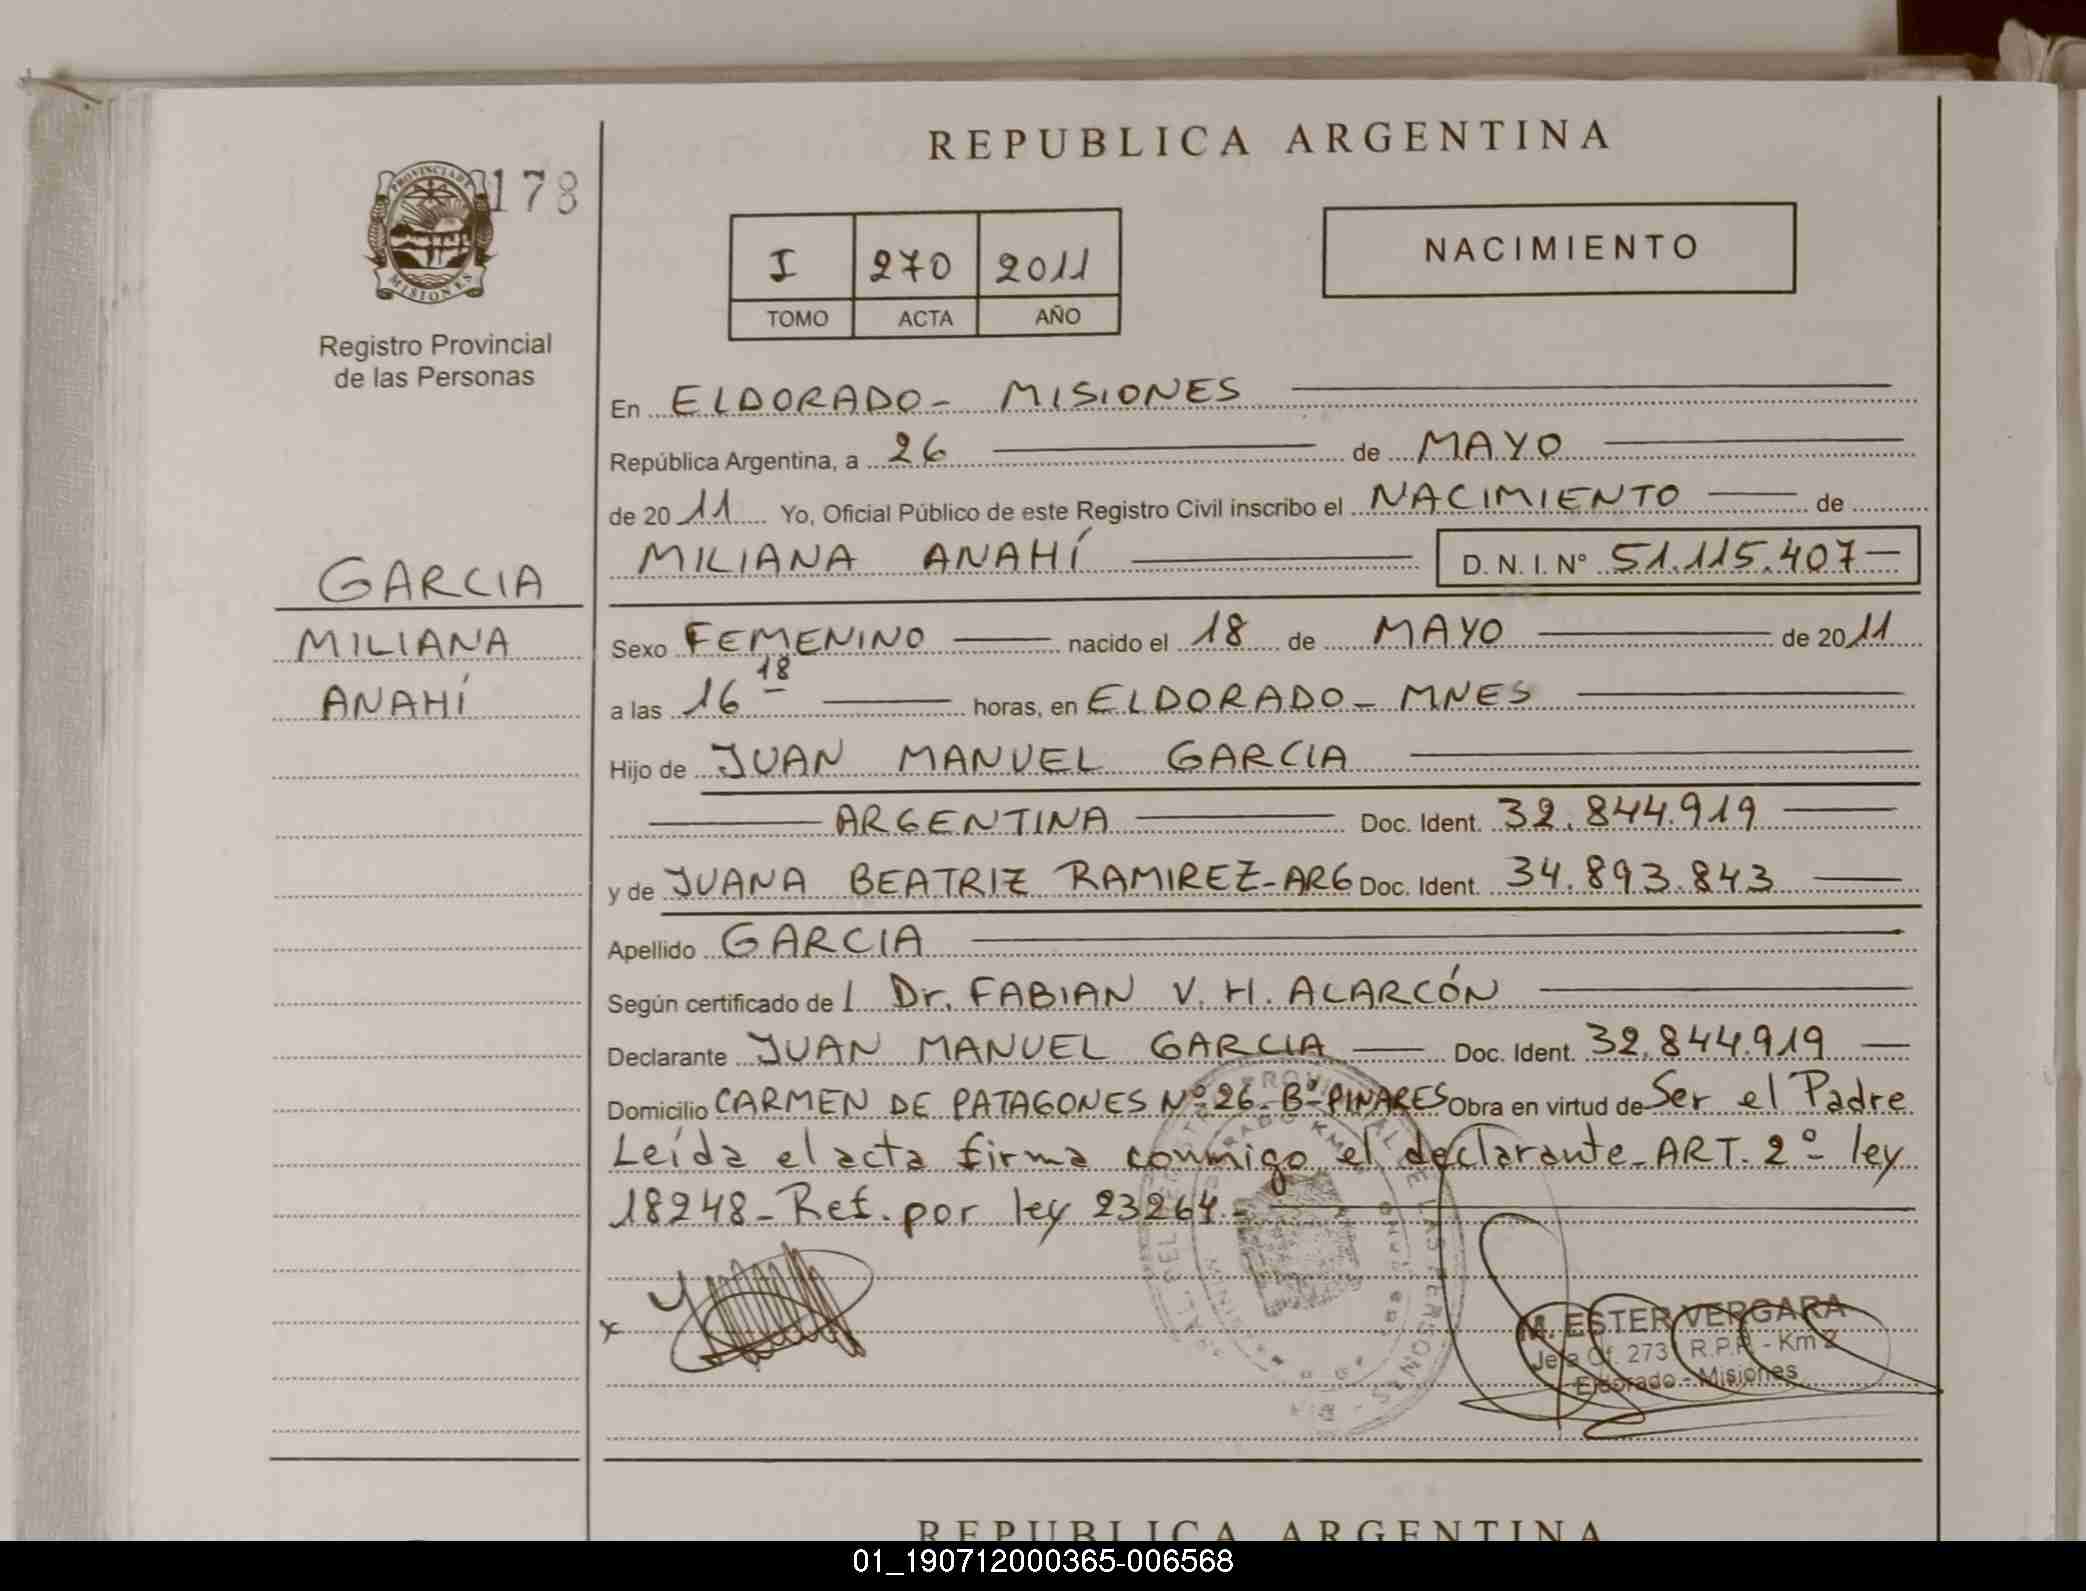 REPUBLICA ARGENTINA
PROVINCIA DE
MISIONES
178
Registro Provincial
de las Personas
I 270 2011
TOMO ACTA AÑO
NACIMIENTO
En ELDORADO - MISIONES
República Argentina, a 26 de MAYO
de 2011 Yo, Oficial Público de este Registro Civil inscribo el NACIMIENTO de
MILIANA ANAHÍ D. N. I. Nº 51.115.407
GARCIA
MILIANA
ANAHÍ
Sexo FEMENINO nacido el 18 de MAYO de 2011
a las 16 18 horas, en ELDORADO - MNES
Hijo de JUAN MANUEL GARCIA
ARGENTINA Doc. Ident. 32.844.919
y de JUANA BEATRIZ RAMIREZ - ARG Doc. Ident. 34.893.843
Apellido GARCIA
Según certificado de l Dr. FABIAN V. H. ALARCÓN
Declarante JUAN MANUEL GARCIA Doc. Ident. 32.844.919
Domicilio CARMEN DE PATAGONES Nº 26 - Bº PINARES Obra en virtud de Ser el Padre
Leída el acta firma conmigo el declarante - ART. 2º ley
18248 - Ref. por ley 23264 -
x
M. ESTER VERGARA
Jefa Of. 273 R.P.P. - Km 2
Eldorado - Misiones
REPUBLICA ARGENTINA
01_190712000365-006568